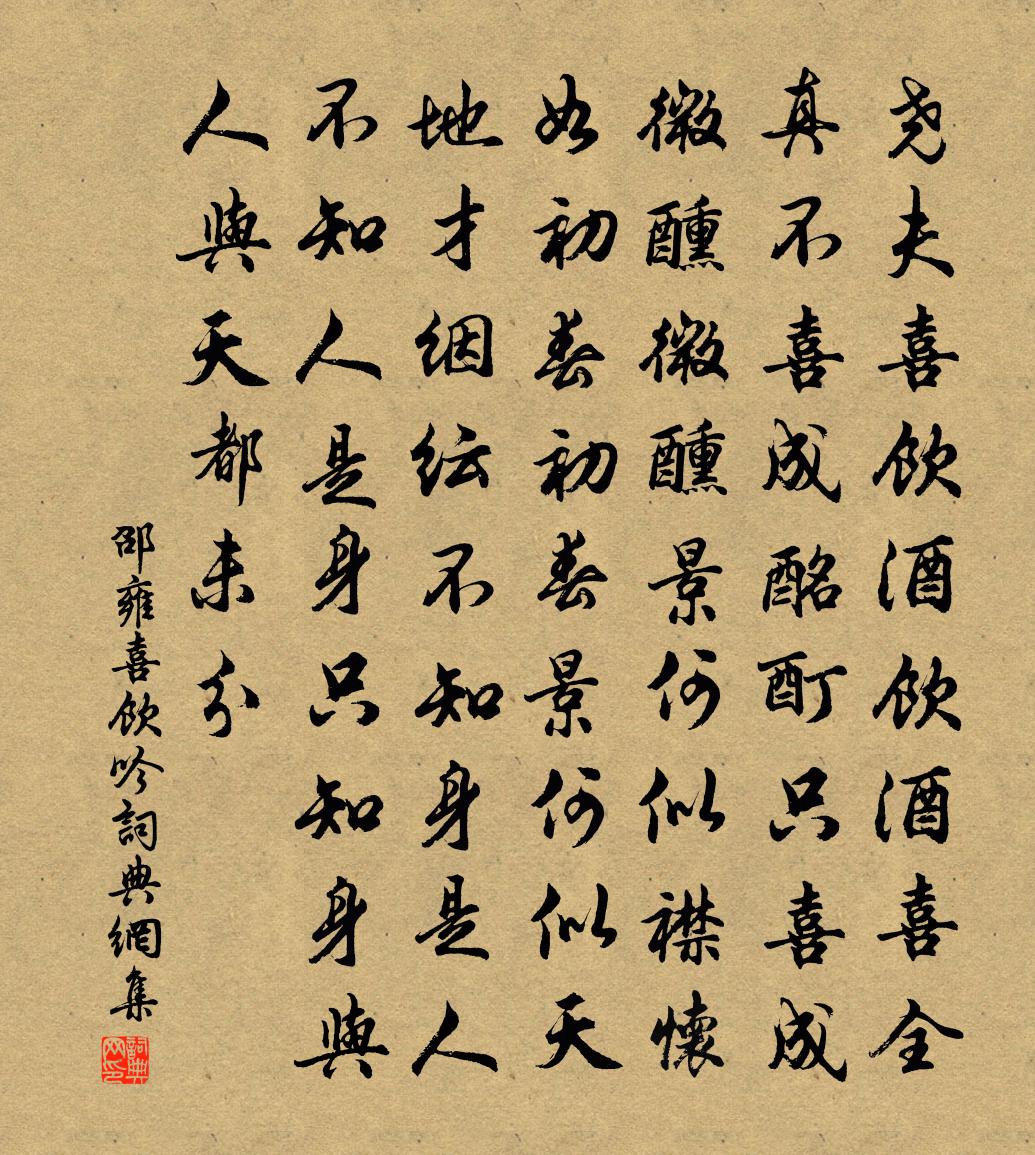 尧夫喜飲酒飲酒喜全
真不喜成酩酊只喜成
微醺微醺景何似襟懷
如初春初春景何似天
地才絪紜不知身是人
不知人是身只知身與
人與天都未分
邵雍喜飲吟詞典網集
詞典
网印